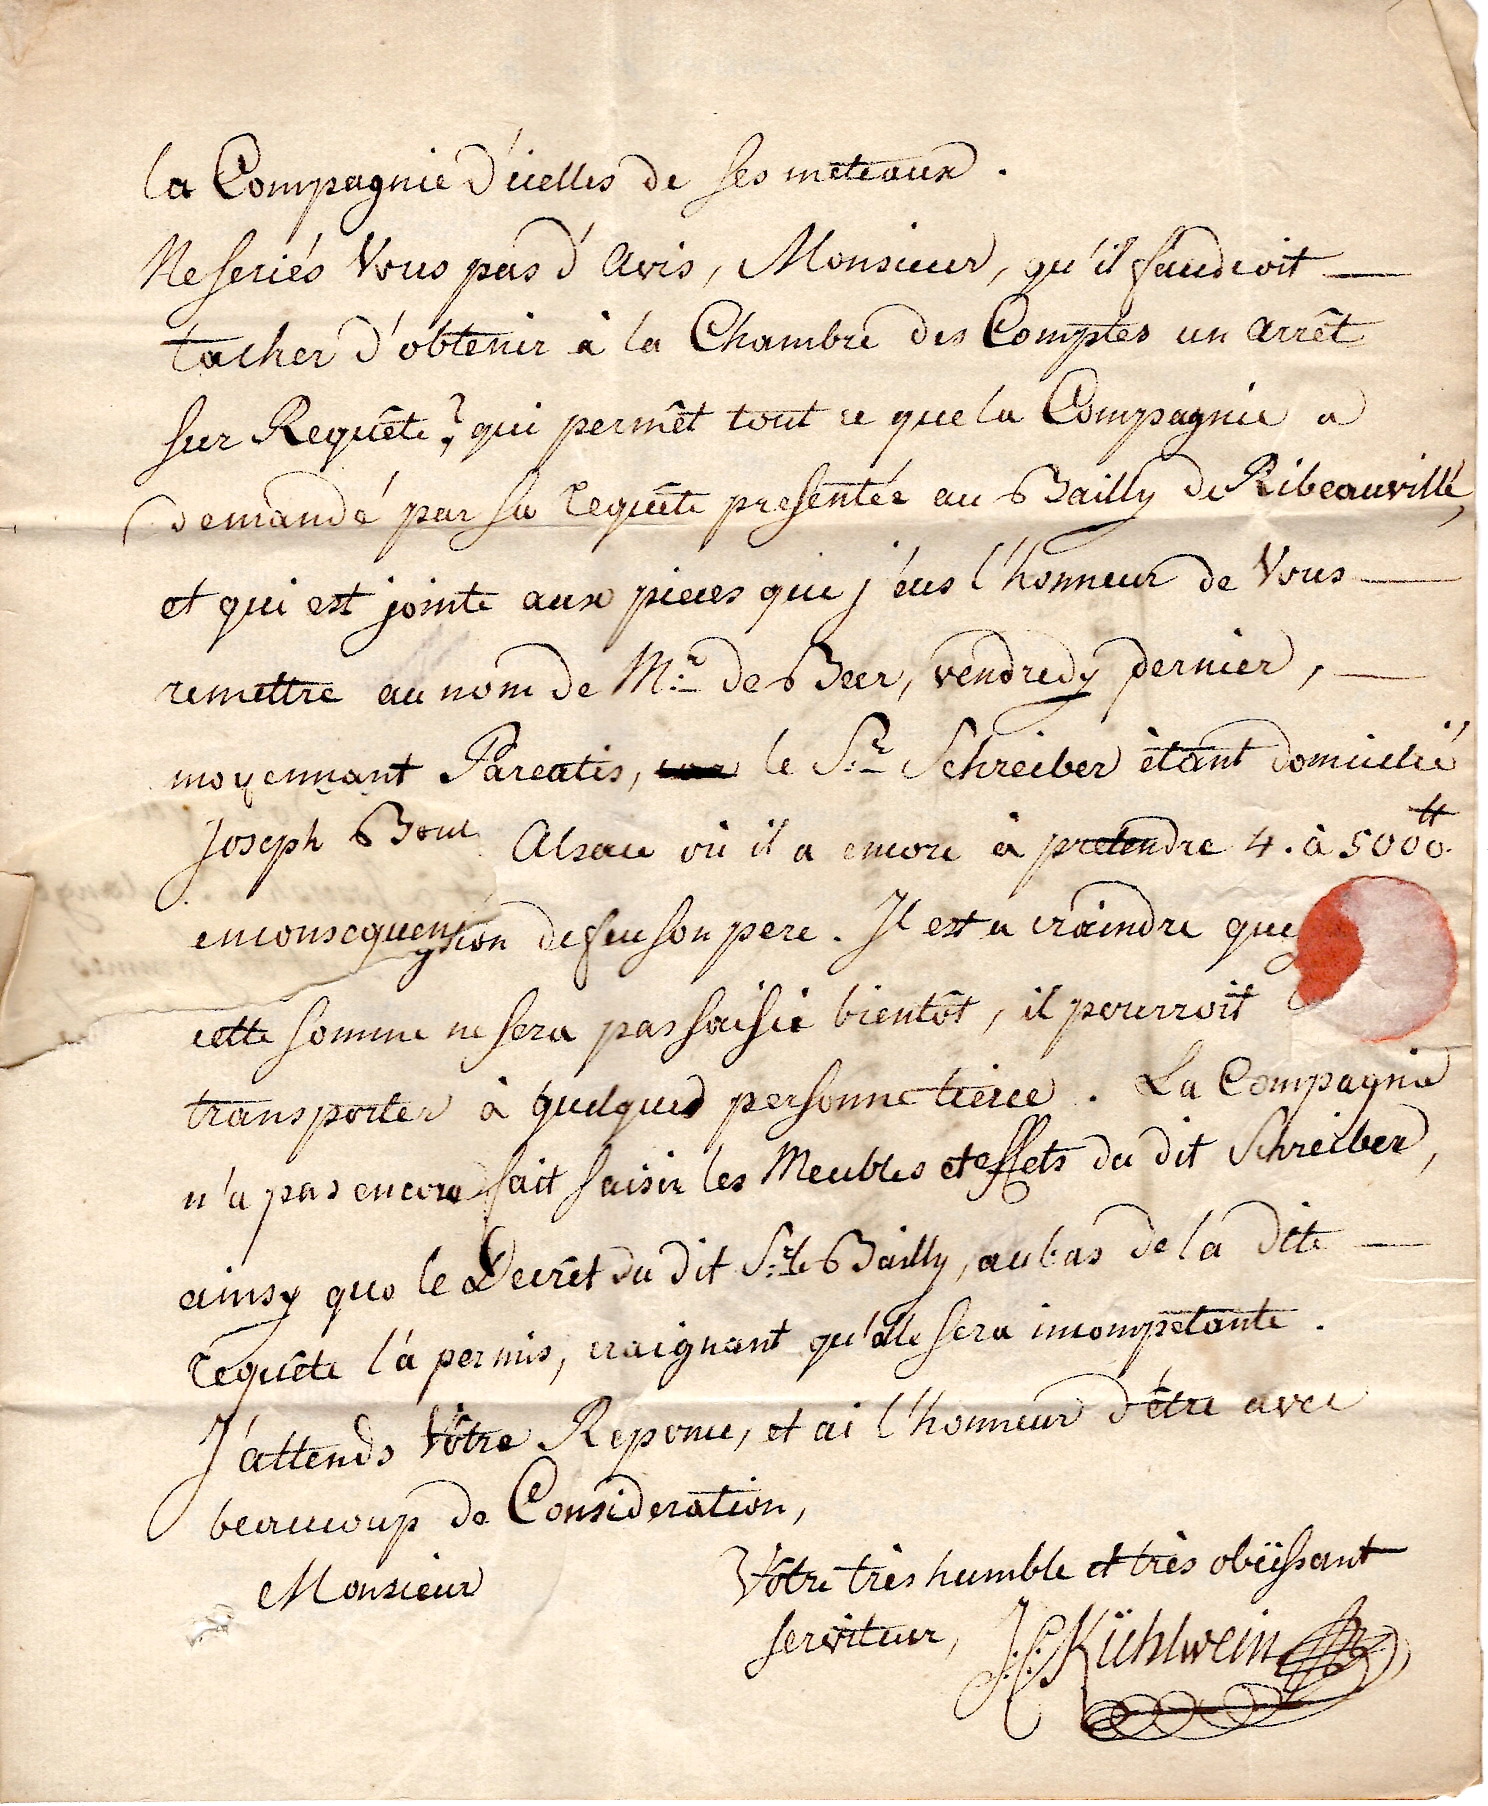 la Compagnie d'icelles de ses meteaux.
Ne seriés Vous pas d'Avis, Monsieur, qu'il faudroit —
tacher d'obtenir à la Chambre des Comptes un arrêt
sur Requête? qui permêt tout ce que la Compagnie a
demandé par sa requête presentée au Bailly de Ribeauvillé,
et qui est jointe aux pieces que j'eus l'honneur de Vous —
remettre au nom de M:r de Beer, vendredy dernier, —
moyennant Pareatis, le S:r Schreiber ètant domicilié
Joseph Alsace où il a encore à pretendre 4. à 5000 ₶
enconsequen de feu son pere. Il est a craindre que
cette somme ne sera pas saisie bientôt, il pourroit
transporter à quelques personne tierce. La Compagnie
n'a pas encore fait saisir les Meubles et effets du dit Schreiber,
ainsy que le Decrêt du dit S:r le Bailly, au bas de la dite —
requête l'a permis, craignant qu'elle sera incompetante.
J'attends Vôtre Reponce, et ai l'honneur d'étre avec
beaucoup de Consideration,
Monsieur
Vôtre très humble et très obëissant
serviteur, J:C:Kühlwein